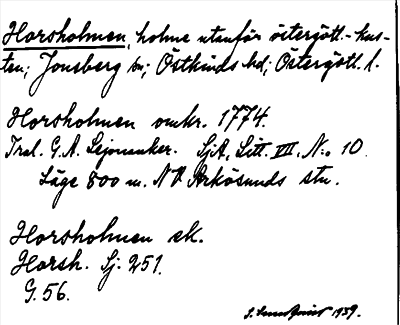 Horsholmen, holme utanför östergötl.-kus-
ten; Jonsberg sn; Östkinds hd; Östergötl. l.
Horsholmen omkr. 1774.
Trol. G. A. Lejonanker. SjA, Litt. VII, N:o 10.
Läge 800 m. NV Arkösunds stn.
Horsholmen ek.
Horsh. Sj. 251.
G. 56.
1939.